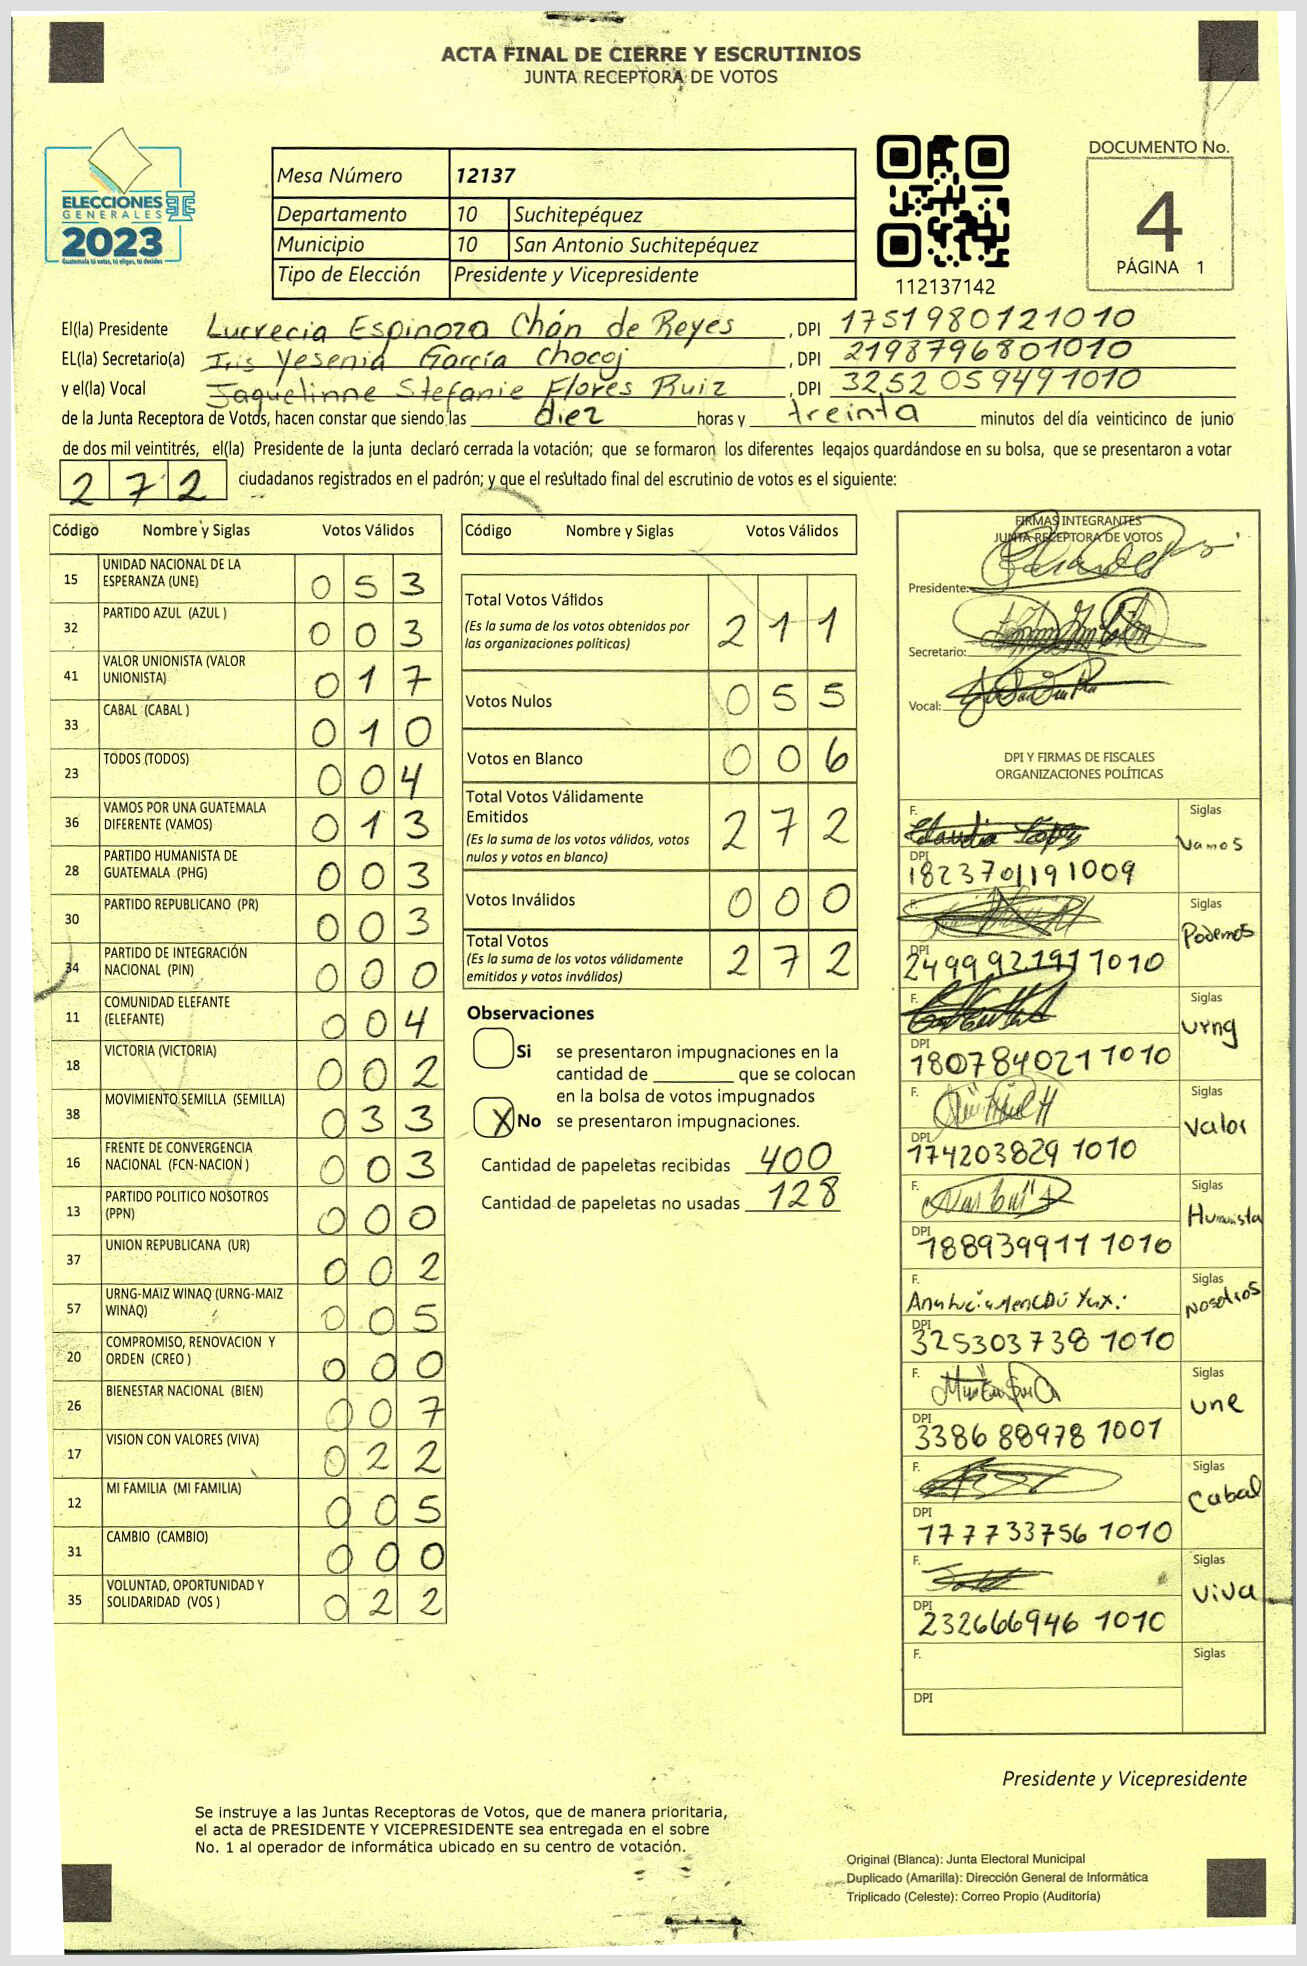 ACTA FINAL DE CIERRE Y ESCRUTINIOS
JUNTA RECEPTORA DE VOTOS
ELECCIONES
GENERALES
2023
Guatemala tú votas, tú eliges, tú decides
Mesa Número 12137
Departamento 10 Suchitepéquez
Municipio 10 San Antonio Suchitepéquez
Tipo de Elección Presidente y Vicepresidente
112137142
DOCUMENTO No.
4
PÁGINA 1
El(la) Presidente Lucrecia Espinoza Chán de Reyes, DPI 1751980121010
EL(la) Secretario(a) Iris Yesenia García Chocoj, DPI 2198796801010
y el(la) Vocal Jaquelinne Stefanie Flores Ruiz, DPI 3252059491010
de la Junta Receptora de Votos, hacen constar que siendo las diez horas y treinta minutos del día veinticinco de junio
de dos mil veintitrés, el(la) Presidente de la junta declaró cerrada la votación; que se formaron los diferentes legajos quardándose en su bolsa, que se presentaron a votar
272 ciudadanos registrados en el padrón; y que el resultado final del escrutinio de votos es el siguiente:
Código Nombre y Siglas Votos Válidos
15 UNIDAD NACIONAL DE LA ESPERANZA (UNE) 053
32 PARTIDO AZUL (AZUL ) 003
41 VALOR UNIONISTA (VALOR UNIONISTA) 017
33 CABAL (CABAL ) 010
23 TODOS (TODOS) 004
36 VAMOS POR UNA GUATEMALA DIFERENTE (VAMOS) 013
28 PARTIDO HUMANISTA DE GUATEMALA (PHG) 003
30 PARTIDO REPUBLICANO (PR) 003
34 PARTIDO DE INTEGRACIÓN NACIONAL (PIN) 000
11 COMUNIDAD ELEFANTE (ELEFANTE) 004
18 VICTORIA (VICTORIA) 002
38 MOVIMIENTO SEMILLA (SEMILLA) 033
16 FRENTE DE CONVERGENCIA NACIONAL (FCN-NACION ) 003
13 PARTIDO POLITICO NOSOTROS (PPN) 000
37 UNION REPUBLICANA (UR) 002
57 URNG-MAIZ WINAQ (URNG-MAIZ WINAQ) 005
20 COMPROMISO, RENOVACION Y ORDEN (CREO ) 000
26 BIENESTAR NACIONAL (BIEN) 007
17 VISION CON VALORES (VIVA) 022
12 MI FAMILIA (MI FAMILIA) 005
31 CAMBIO (CAMBIO) 000
35 VOLUNTAD, OPORTUNIDAD Y SOLIDARIDAD (VOS ) 022
Código Nombre y Siglas Votos Válidos
Total Votos Válidos 211
(Es la suma de los votos obtenidos por
las organizaciones políticas)
Votos Nulos 055
Votos en Blanco 006
Total Votos Válidamente
Emitidos 272
(Es la suma de los votos válidos, votos
nulos y votos en blanco)
Votos Inválidos 000
Total Votos 272
(Es la suma de los votos válidamente
emitidos y votos inválidos)
Observaciones
Si se presentaron impugnaciones en la
cantidad de ________ que se colocan
en la bolsa de votos impugnados
X No se presentaron impugnaciones.
Cantidad de papeletas recibidas 400
Cantidad de papeletas no usadas 128
FIRMAS INTEGRANTES
JUNTA RECEPTORA DE VOTOS
Presidente:
Secretario:
Vocal:
DPI Y FIRMAS DE FISCALES
ORGANIZACIONES POLÍTICAS
F. Claudia López Siglas
Vamos
DPI 1823701191009
F. Siglas
Podemos
DPI 2499921911010
F. Siglas
urng
DPI 1807840211010
F. Siglas
Valor
DPI 1742038291010
F. Siglas
Humanista
DPI 1889399111010
F. Siglas
Nosotros
DPI 3253037381010
F. Siglas
une
DPI 3386889781001
F. Siglas
Cabal
DPI 1777337561010
F. Siglas
Viva
DPI 2326669461010
F. Siglas
DPI
Presidente y Vicepresidente
Se instruye a las Juntas Receptoras de Votos, que de manera prioritaria,
el acta de PRESIDENTE Y VICEPRESIDENTE sea entregada en el sobre
No. 1 al operador de informática ubicado en su centro de votación.
Original (Blanca): Junta Electoral Municipal
Duplicado (Amarilla): Dirección General de Informática
Triplicado (Celeste): Correo Propio (Auditoría)